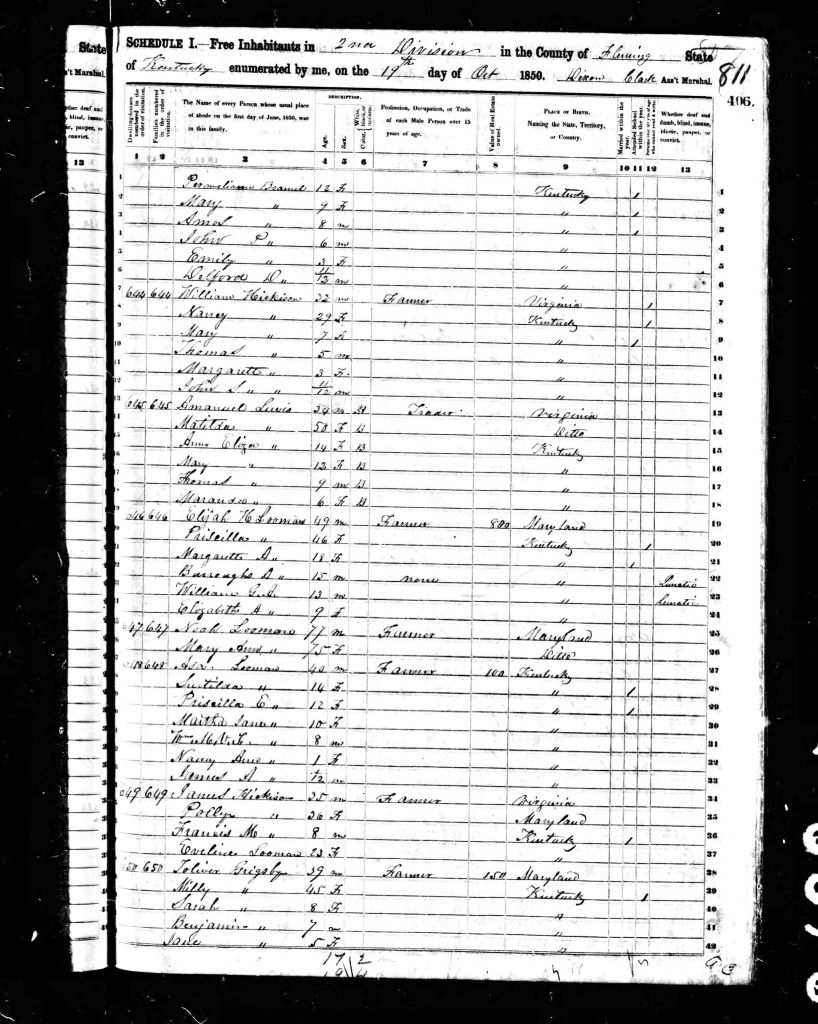 State
Ass't Marshal.
whether deaf and dumb, blind, insane, idiotic, pauper, or convict.
13
SCHEDULE I.—Free Inhabitants in 2nd Division in the County of Fleming State
of Kentucky enumerated by me, on the 19th day of Oct 1850. Dixon Clark Ass't Marshal.
811
406.
Dwelling-houses numbered in the order of visitation. Families numbered in the order of visitation. The Name of every Person whose usual place of abode on the first day of June, 1850, was in this family. DESCRIPTION. Age. Sex. Color, White, black, or mulatto. Profession, Occupation, or Trade of each Male Person over 15 years of age. Value of Real Estate owned. PLACE OF BIRTH. Naming the State, Territory, or Country. Married within the year. Attended School within the year. Persons over 20 y'rs of age who cannot read & write. Whether deaf and dumb, blind, insane, idiotic, pauper, or convict.
1 2 3 4 5 6 7 8 9 10 11 12 13
Bramel 12 F Kentucky 1 1
Mary " 9 F " 1 2
Amos " 8 m " 1 3
John P " 6 m " 4
Emily " 3 F " 5
D " 11/12 m " 6
644 644 William Hickison 32 m Farmer Virginia 1 7
Nancy " 29 F Kentucky 1 8
Mary " 7 F " 1 9
Thomas " 5 m " 10
Margarett " 3 F " 11
John S " " 11/12 m " 12
645 645 Emanuel Lewis 34 m B Trader Virginia 13
Matilda " 50 F B Ditto 14
Ann Eliza " 14 F B Kentucky 15
Mary " 12 F B " 16
Thomas " 9 m B " 17
Maranda " 6 F B " 18
646 646 Elijah H Looman 49 m Farmer 800 Maryland 19
Priscilla " 46 F Kentucky 1 20
Margarette A " 18 F " 1 21
Burroughs A " 15 m none " Lunatic 22
William G A " 13 m " Lunatic 23
Elizabeth A " 9 F " 24
647 647 Noah Looman 77 m Farmer Maryland 25
Mary Ann " 75 F Ditto 26
648 648 Asa Looman 40 m Farmer 100 Kentucky 27
" 14 F " 1 28
Priscilla E " 12 F " 1 29
Martha Jane " 10 F " 30
Wm " 8 m " 31
Nancy Ann " 1 F " 32
James A " m " 33
649 649 James Hickison 35 m Farmer Virginia 34
Polly " 36 F Maryland 35
Francis M " 8 m Kentucky 1 36
Eveline Looman 23 F " 37
650 650 Toliver Grigsby 39 m Farmer 150 Maryland 38
Milly " 45 F Kentucky 1 39
Sarah " 8 F " 40
Benjamin " 7 m " 41
Jane " 5 F " 42
17 2